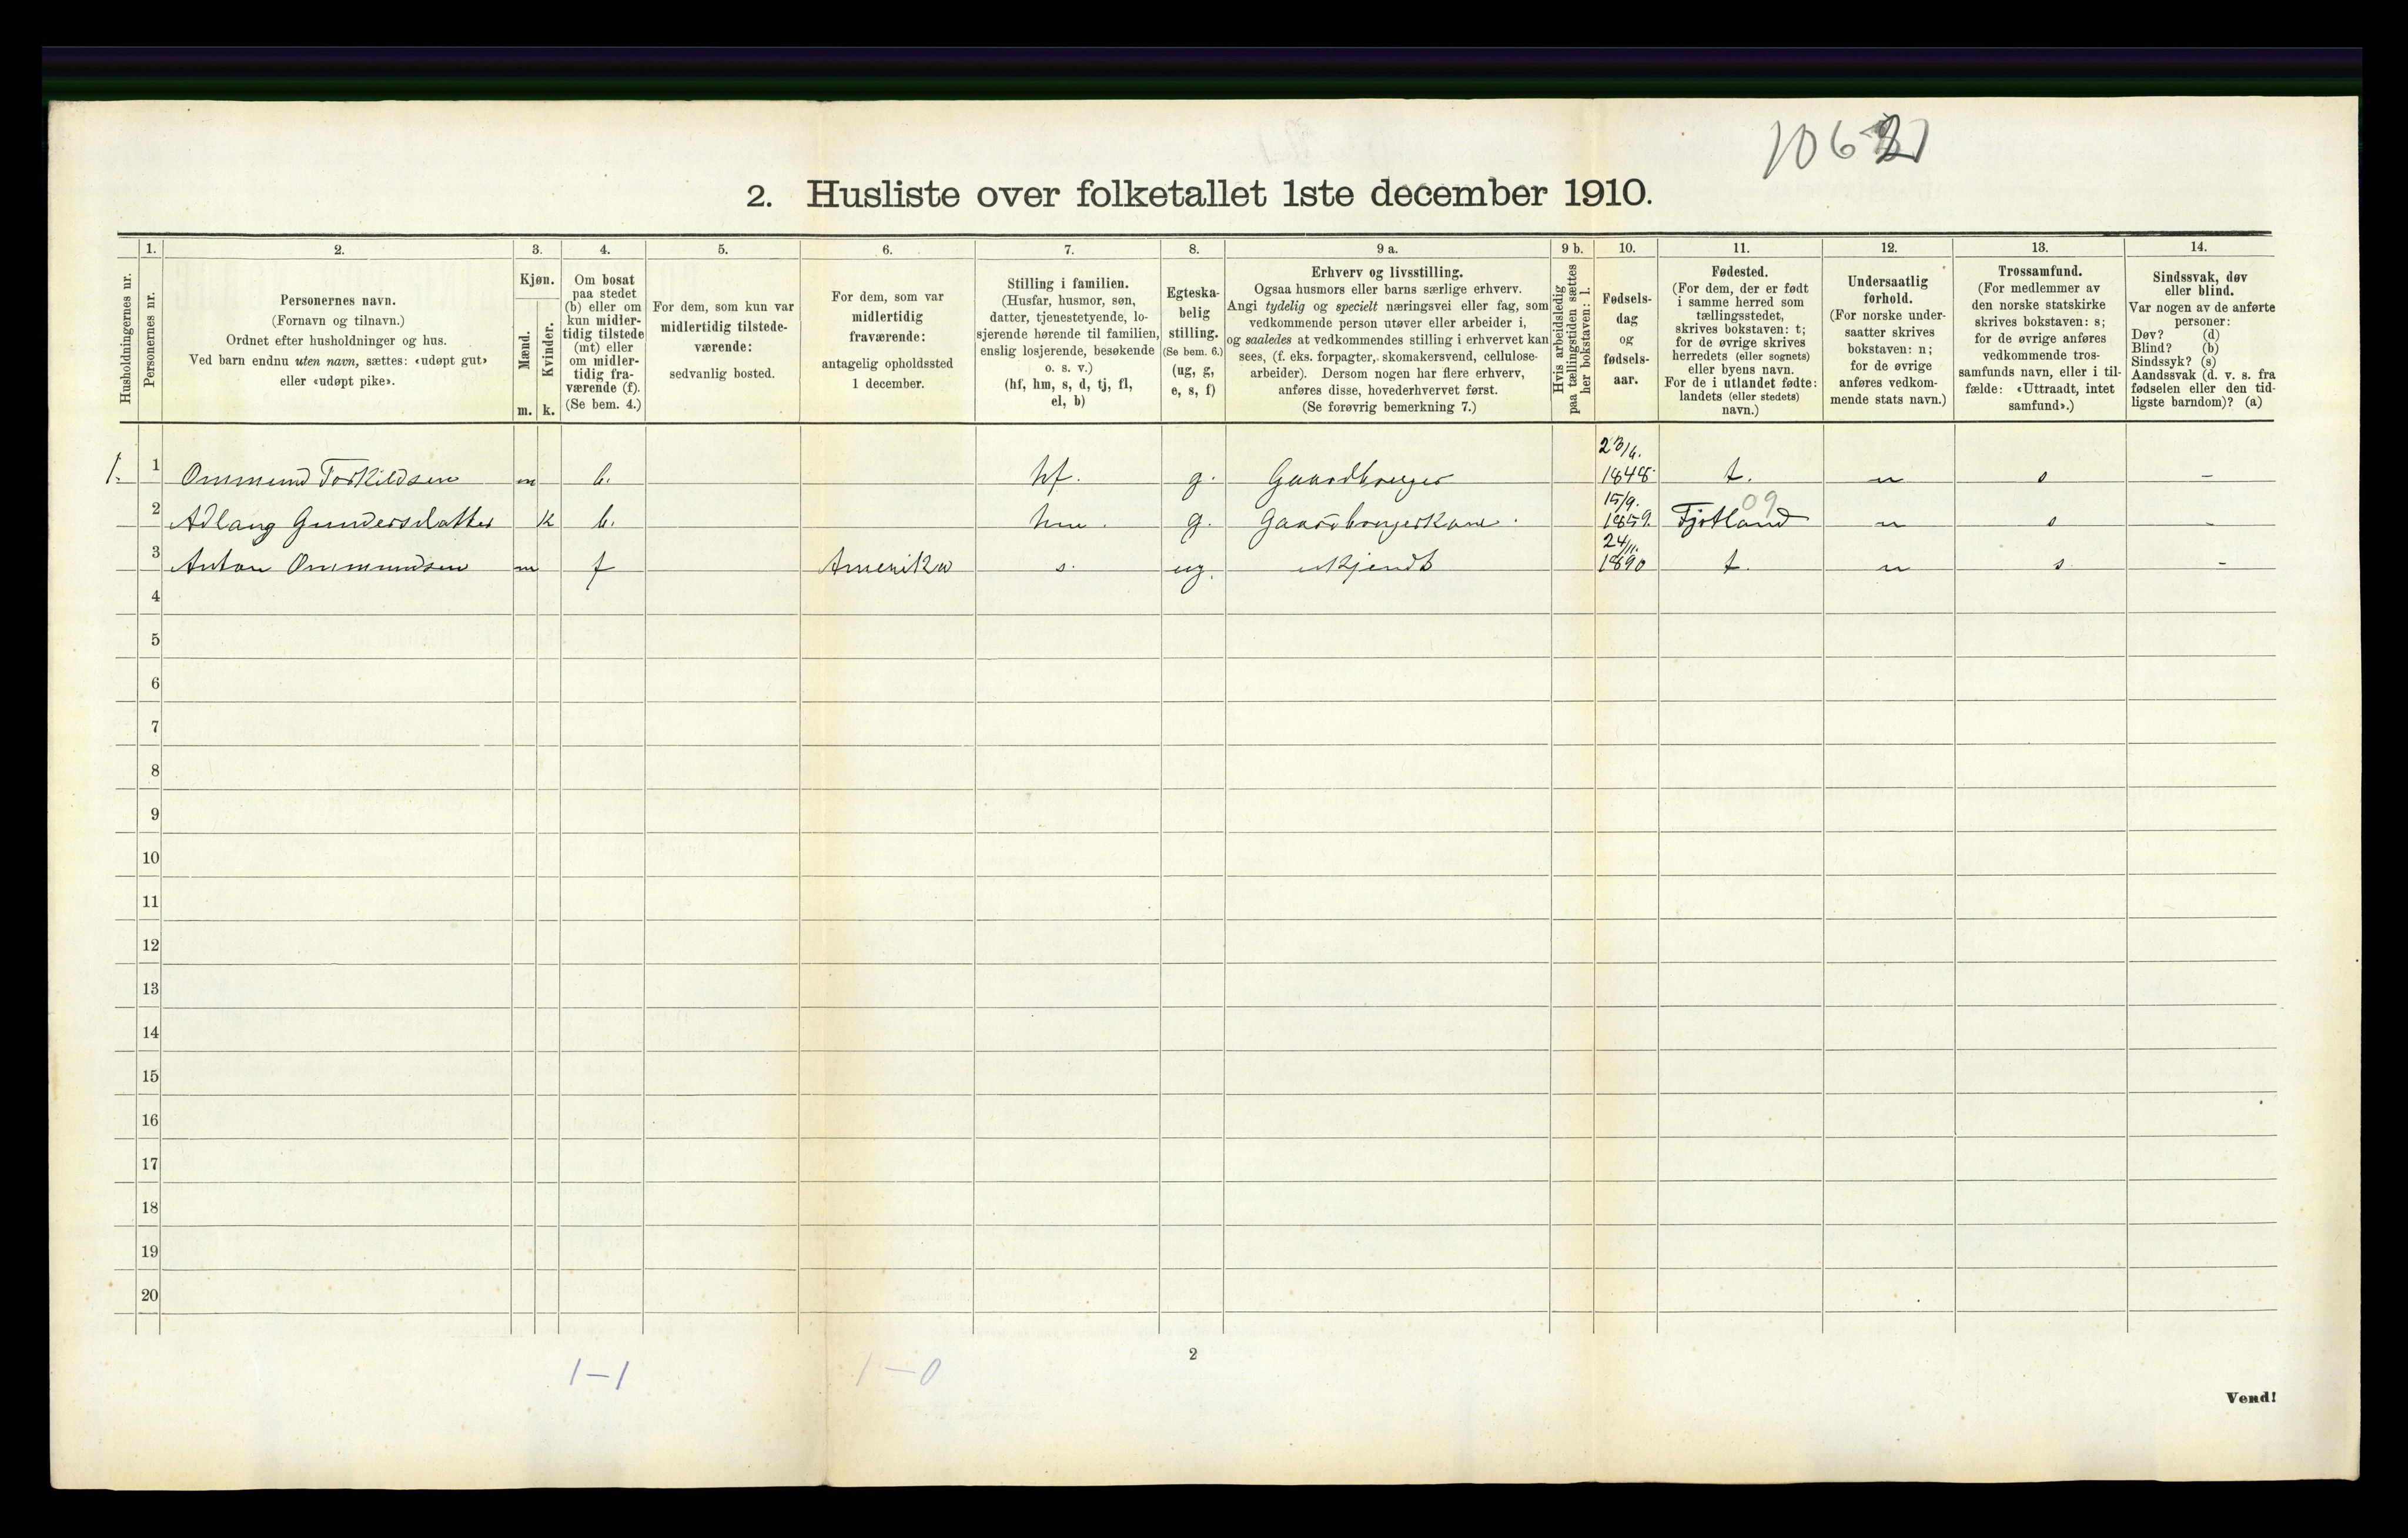 2. Husliste over folketallet 1ste december 1910.
1. 2. 3. 4. 5. 6. 7. 8. 9 a. 9 b. 10. 11. 12. 13. 14.
Husholdningernes nr.
Personernes nr.
Personernes navn.
(Fornavn og tilnavn.)
Ordnet efter husholdninger og hus.
Ved barn endnu uten navn, sættes: «udøpt gut»
eller «udøpt pike».
Kjøn.
Mænd.
Kvinder.
m. k.
Om bosat
paa stedet
(b) eller om
kun midler-
tidig tilstede
(mt) eller
om midler-
tidig fra-
værende (f).
(Se bem. 4.)
For dem, som kun var
midlertidig tilstede-
værende:
sedvanlig bosted.
For dem, som var
midlertidig
fraværende:
antagelig opholdssted
1 december.
Stilling i familien.
(Husfar, husmor, søn,
datter, tjenestetyende, lo-
sjerende hørende til familien,
enslig losjerende, besøkende
o. s. v.)
(hf, hm, s, d, tj, fl,
el, b)
Egteska-
belig
stilling.
(Se bem. 6.)
(ug, g,
e, s, f)
Erhverv og livsstilling.
Ogsaa husmors eller barns særlige erhverv.
Angi tydelig og specielt næringsvei eller fag, som
vedkommende person utøver eller arbeider i,
og saaledes at vedkommendes stilling i erhvervet kan
sees, (f. eks. forpagter, skomakersvend, cellulose-
arbeider). Dersom nogen har flere erhverv,
anføres disse, hovederhvervet først.
(Se forøvrig bemerkning 7.)
Hvis arbeidsledig
paa tællingstiden sættes
her bokstaven: l.
Fødsels-
dag
og
fødsels-
aar.
Fødested.
(For dem, der er født
i samme herred som
tællingsstedet,
skrives bokstaven: t;
for de øvrige skrives
herredets (eller sognets)
eller byens navn.
For de i utlandet fødte:
landets (eller stedets)
navn.)
Undersaatlig
forhold.
(For norske under-
saatter skrives
bokstaven: n;
for de øvrige
anføres vedkom-
mende stats navn.)
Trossamfund.
(For medlemmer av
den norske statskirke
skrives bokstaven: s;
for de øvrige anføres
vedkommende tros-
samfunds navn, eller i til-
fælde: «Uttraadt, intet
samfund».)
Sindssvak, døv
eller blind.
Var nogen av de anførte
personer:
Døv? (d)
Blind? (b)
Sindssyk? (s)
Aandssvak (d. v. s. fra
fødselen eller den tid-
ligste barndom)? (a)
1. 1 Ommund Torkildsen m b. hf. g. Gaardbruger 1848 t. n s -
2 Adlaug Gundersdatter k b. hm. g. Gaardbrugerkone. 15/9. 1859. Fjotland 09 n s -
3 Anton Ommundsen m f Amerika s. ug. ukjendt 24/11. 1890 t. n s -
4
5
6
7
8
9
10
11
12
13
14
15
16
17
18
19
20
1-1 1-0 2
Vend!